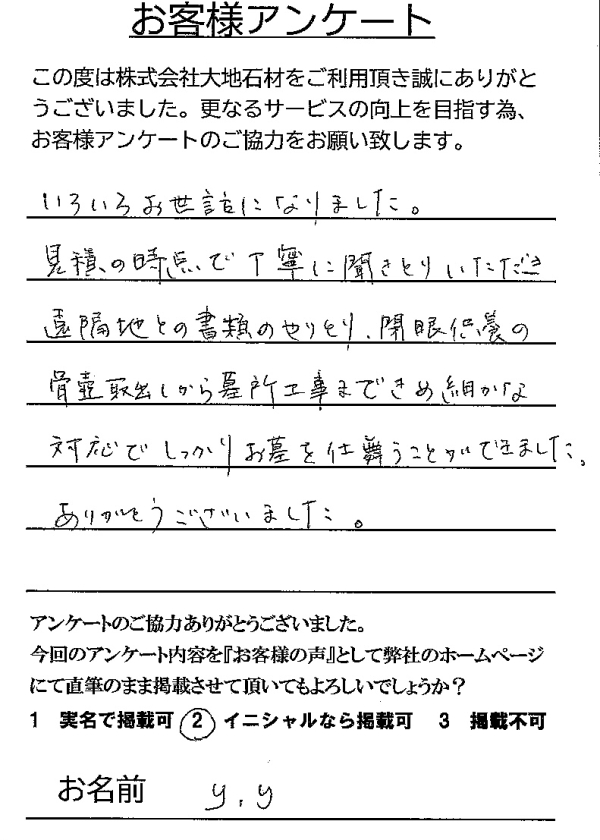 お客様アンケート
この度は株式会社大地石材をご利用頂き誠にありがと
うございました。更なるサービスの向上を目指す為、
お客様アンケートのご協力をお願い致します。
いろいろお世話になりました。
見積の時点で丁寧に聞きとりいただき
遠隔地との書類のやりとり、閉眼供養の
骨壷取出しから墓所工事まできめ細かな
対応でしっかりお墓を仕舞うことができました。
ありがとうございました。
アンケートのご協力ありがとうございました。
今回のアンケート内容を『お客様の声』として弊社のホームページ
にて直筆のまま掲載させて頂いてもよろしいでしょうか？
1 実名で掲載可 2 イニシャルなら掲載可 3 掲載不可
お名前 y.y